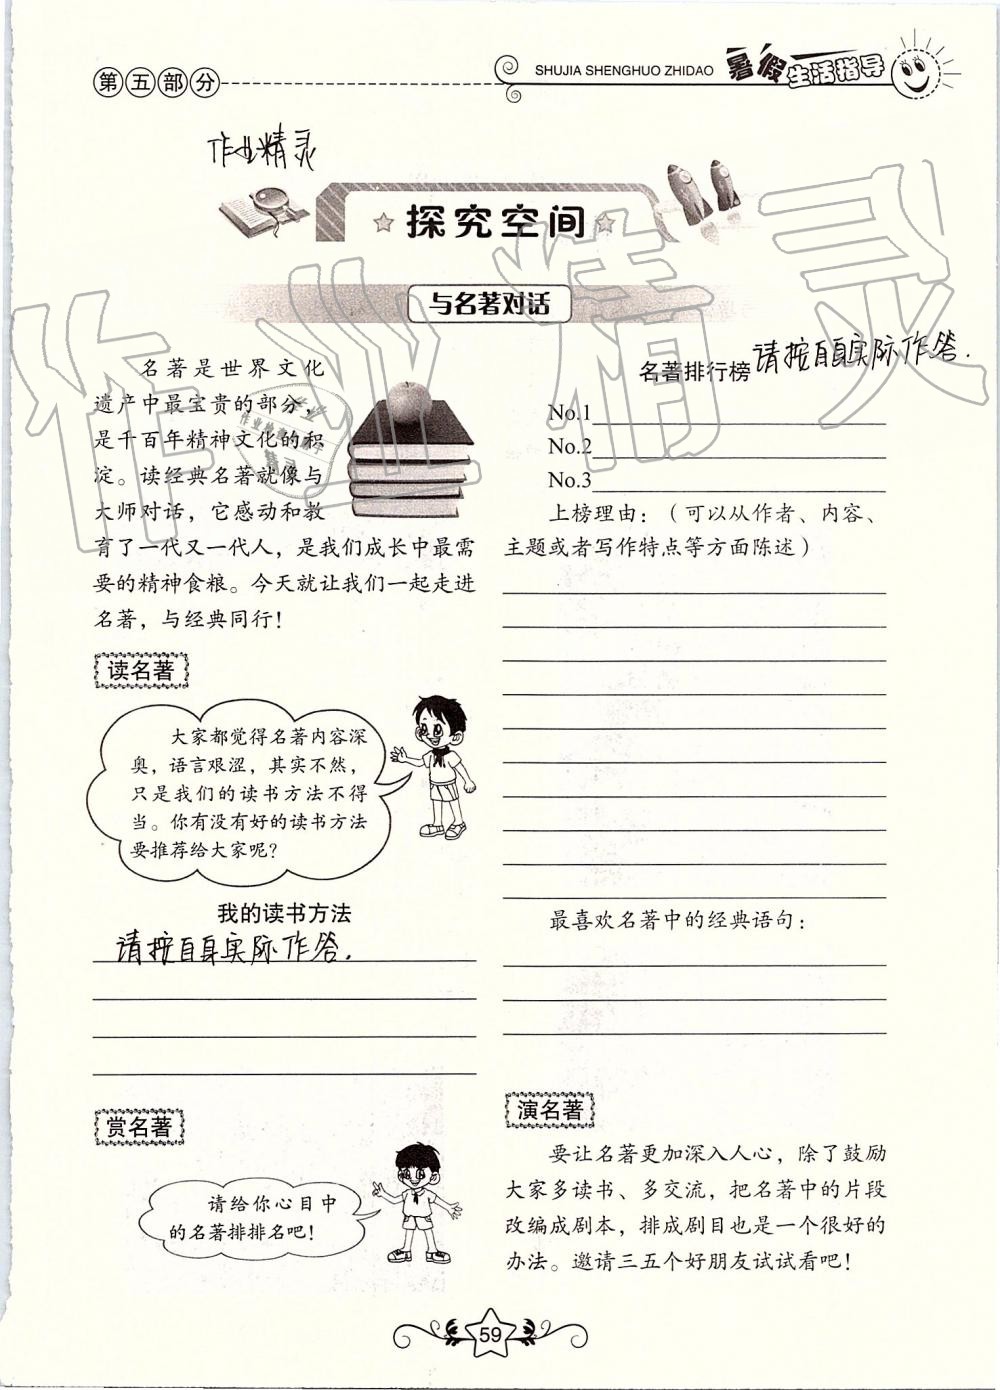 第五部分
SHUJIA SHENGHUO ZHIDAO
暑假生活指导
作业精灵
探究空间
作业精灵
与名著对话
名著是世界文化
遗产中最宝贵的部分，
是千百年精神文化的积
淀。读经典名著就像与
大师对话，它感动和教
育了一代又一代人，是我们成长中最需
要的精神食粮。今天就让我们一起走进
名著，与经典同行！
读名著
大家都觉得名著内容深
奥，语言艰涩，其实不然，
只是我们的读书方法不得
当。你有没有好的读书方法
要推荐给大家呢？
我的读书方法
请按自身实际作答.
赏名著
请给你心目中
的名著排排名吧！
名著排行榜 请按自身实际作答.
No.1
No.2
No.3
上榜理由：（可以从作者、内容、
主题或者写作特点等方面陈述）
最喜欢名著中的经典语句：
演名著
要让名著更加深入人心，除了鼓励
大家多读书、多交流，把名著中的片段
改编成剧本，排成剧目也是一个很好的
办法。邀请三五个好朋友试试看吧！
59